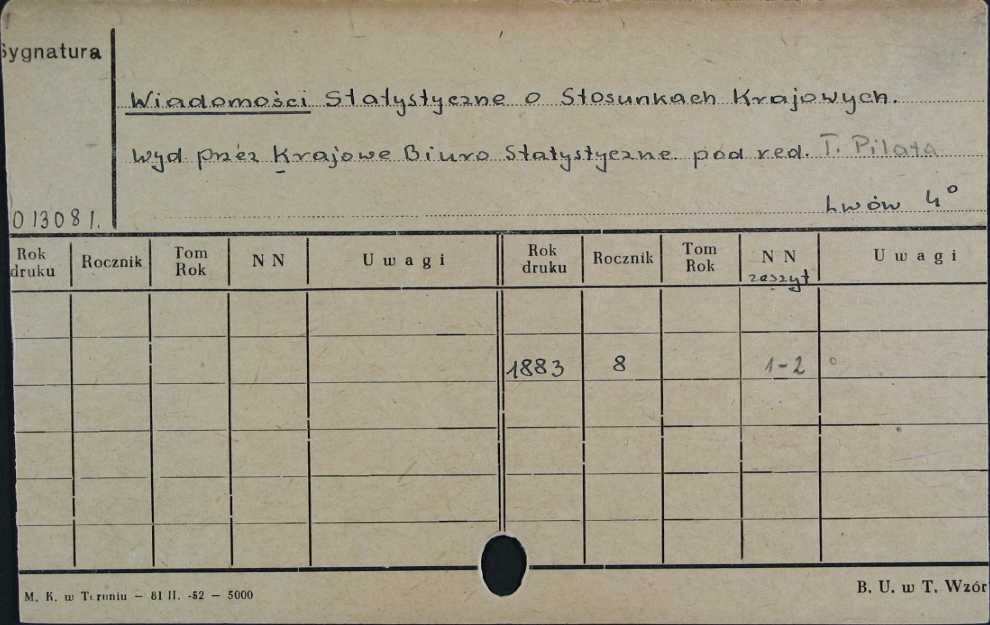 Sygnatura
Wiadomości Statystyczne o Stosunkach Krajowych.
wyd przez Krajowe Biuro Statystyczne. pod red. T. Pilata
Lwów 4°
013081.
Rok druku Rocznik Tom Rok NN Uwagi Rok druku Rocznik Tom Rok NN zeszyt Uwagi
1883 8 1-2
M. K. w Toruniu — 81 II. -52 — 5000
B. U. w T. Wzór